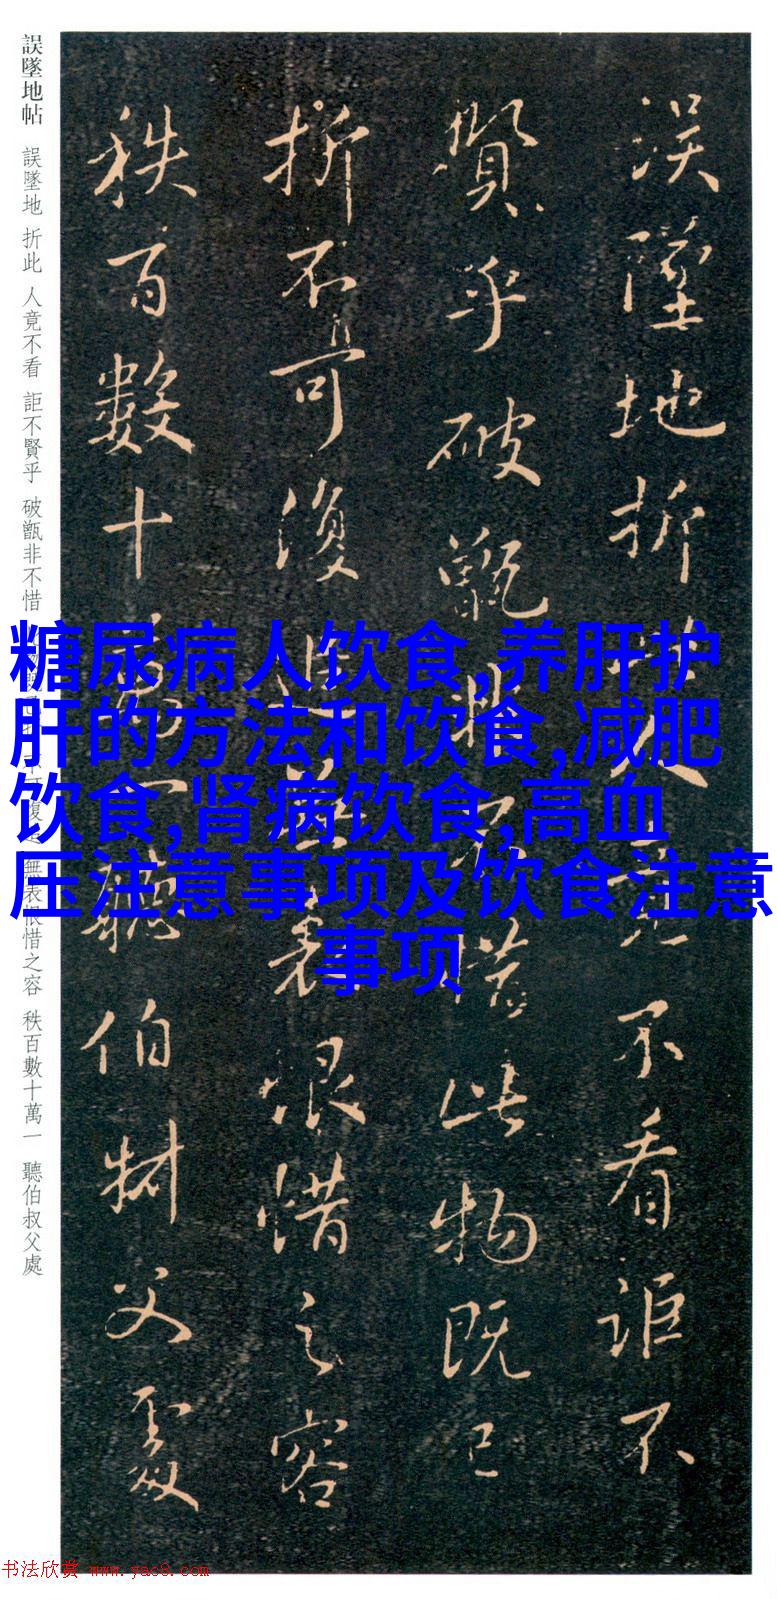 誤墜地折此人竟不看詎不
賢乎破甑非不惜此物既已
折不可復追無表恨惜之容
秩百數十萬一聽伯叔父處
誤墜地帖 誤墜地 折此 人竟不看 詎不賢乎 破甑非不惜 復 無表恨惜之容 秩百數十萬一 聽伯叔父處
糖尿病人饮食,养肝护
肝的方法和饮食,减肥
饮食,肾病饮食,高血
压注意事项及饮食注意
事项
书法欣赏 www.yac8.com